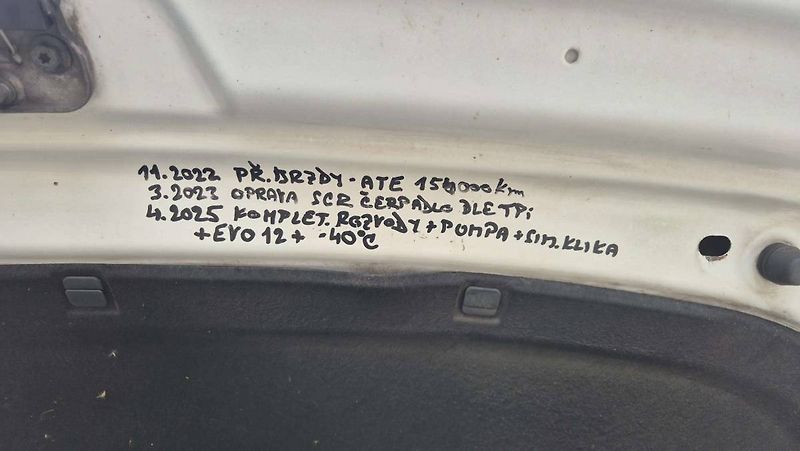 11.2022 PŘ.BRZDY-ATE 154000Km
3.2023 OPRAVA SCR ČERPADLO DLE TPi
4.2025 KOMPLET.ROZVODY+POMPA+SIM.KLIKA
+EVO12+ -40°C